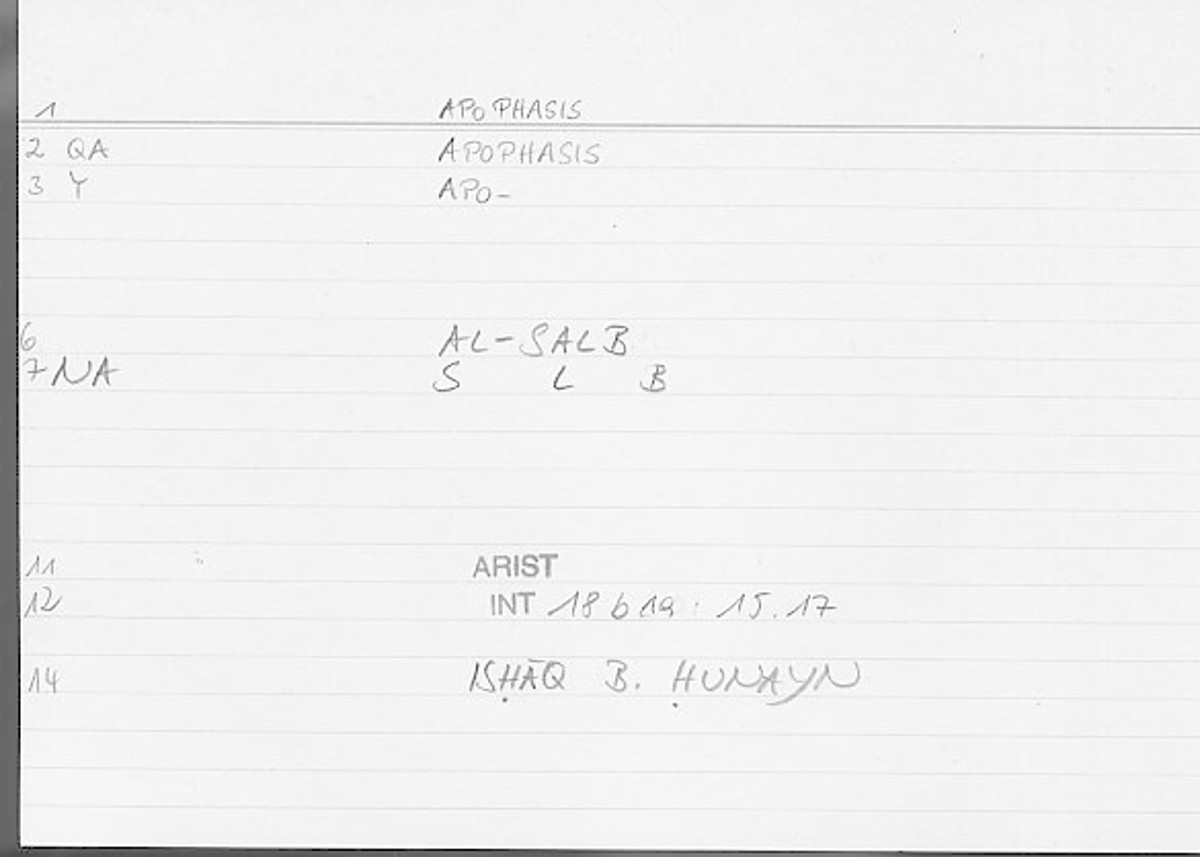 1 APOPHASIS
2 QA APOPHASIS
3 Y APO-
6 AL-SALB
7 NA S L B
11 ARIST
12 INT 18 b 19 : 15.17
14 ISḤĀQ B. ḤUNAYN